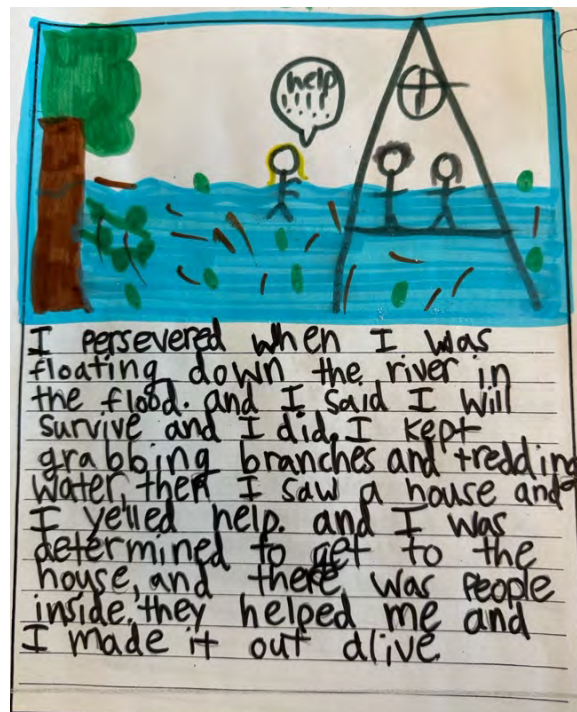 help
!!!!
I persevered when I was
floating down the river in
the flood. and I said I will
survive and I did. I kept
grabbing branches and tredding
water, then I saw a house and
I yelled help. and I was
determined to get to the
house, and there was people
inside. they helped me and
I made it out alive